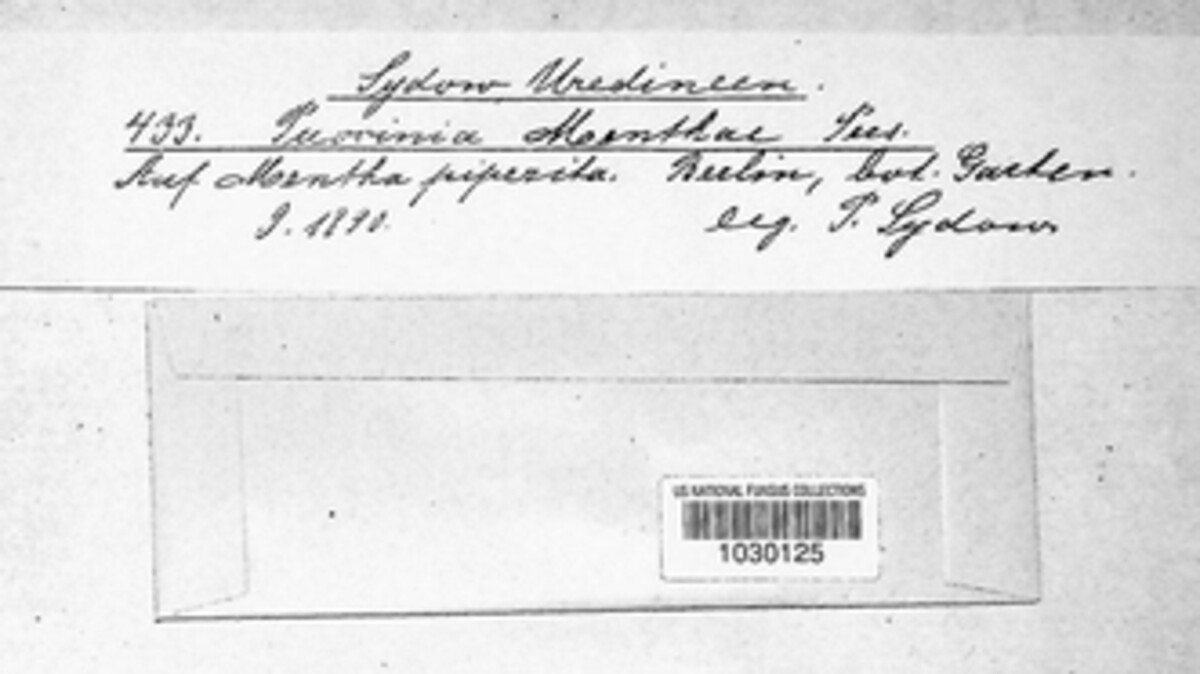 Sydow Uredineen.
433. Puccinia Menthae Pers.
Auf Mentha piperita. Berlin, bot. Garten.
9. 1890. leg. P. Sydow
US NATIONAL FUNGUS COLLECTIONS
1030125